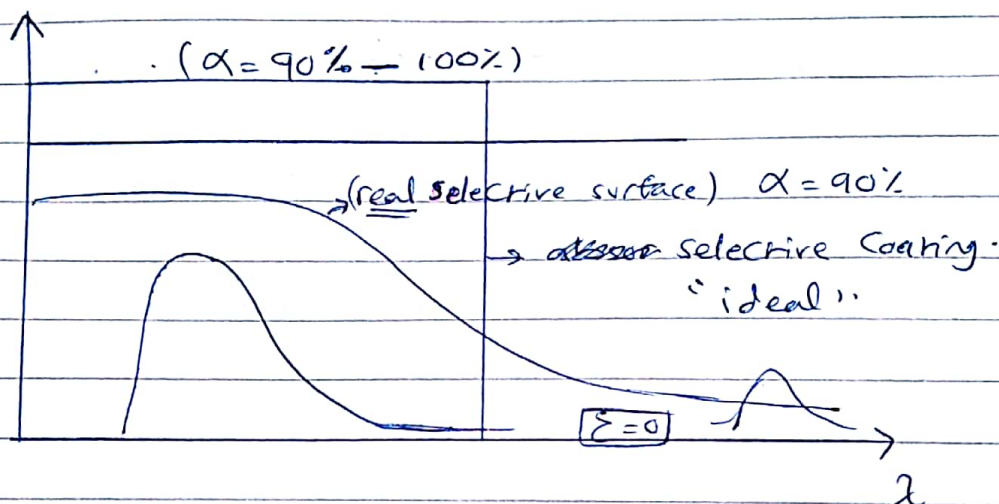 (α = 90% — 100%)
(real selective surface) α = 90%
→ selective Coating.
"ideal"
Ɛ = 0
λ